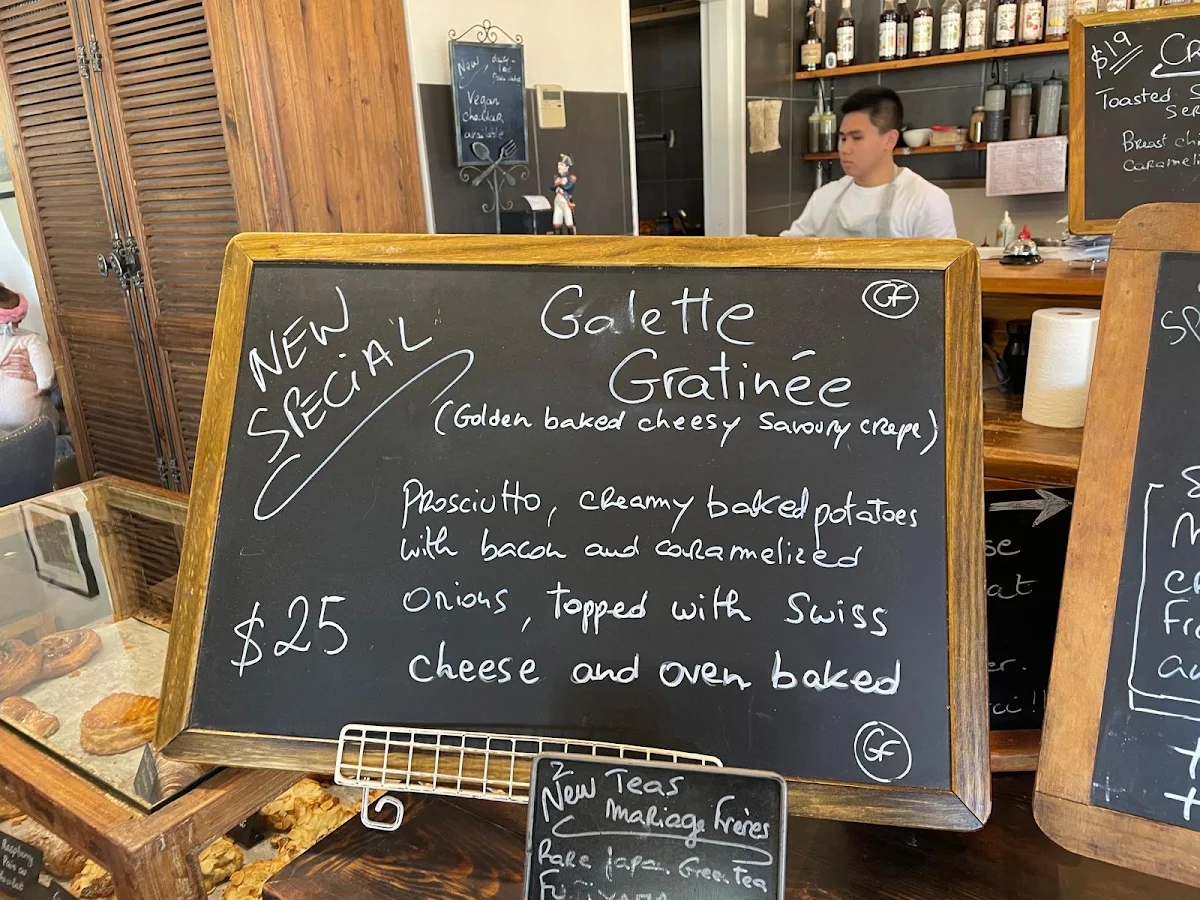 New
Vegan
cheddar
available
$19
Toasted
Breast
NEW
SPECiAL
GF
Galette
Gratinée
(Golden baked cheesy Savoury crepe)
Prosciutto, creamy baked potatoes
with bacon and caramelized
Onions, topped with Swiss
cheese and oven baked
$25
GF
2
New Teas
Mariage Frères
Rare japan Green Tea
Raspberry
Pain au
chocolat